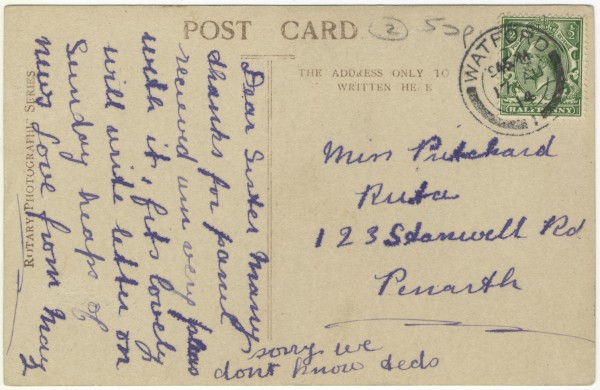 POST CARD
2
50p
WATFORD
HALFPENNY
THE ADDRESS ONLY TO
WRITTEN HERE
ROTARY PHOTOGRAPHIC SERIES
Dear Sister Many
thanks for parcel
recievd am very pleas
with it, fits lovely
will write letter on
Sunday heaps of
news love from May
sorry we
dont know deds
Miss Pritchard
Ruta
123 Stanwell Rd
Penarth